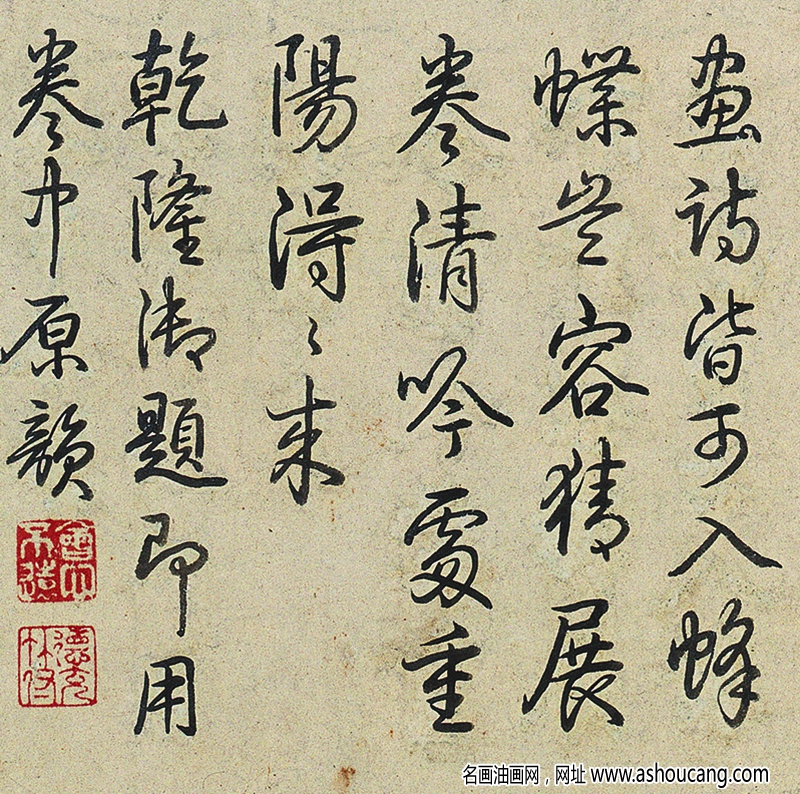 畫詩皆可入蜂
蝶豈容猜展
卷清吟處重
陽得〻来
乾隆御題即用
卷中原韻
會心不遠
德充符
名画油画网，网址 www.ashoucang.com